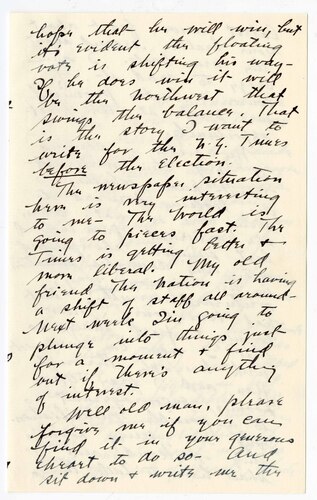 hope that he will win, but
it's evident the floating
vote is shifting his way -
If he does win it will
be the Northwest that
swings the balance. That
is the story I want to
write for the N.Y. Times
before the election.
The newspaper situation
here is very interesting
to me - The World is
going to pieces fast. The
Times is getting better &
more liberal. My old
friend The Nation is having
a shift of staff all around -
Next week I'm going to
plunge into things just
for a moment & find
out if there's anything
of interest.
Well old man, please
forgive me if you can
find it in your generous
heart to do so - And
sit down & write me the